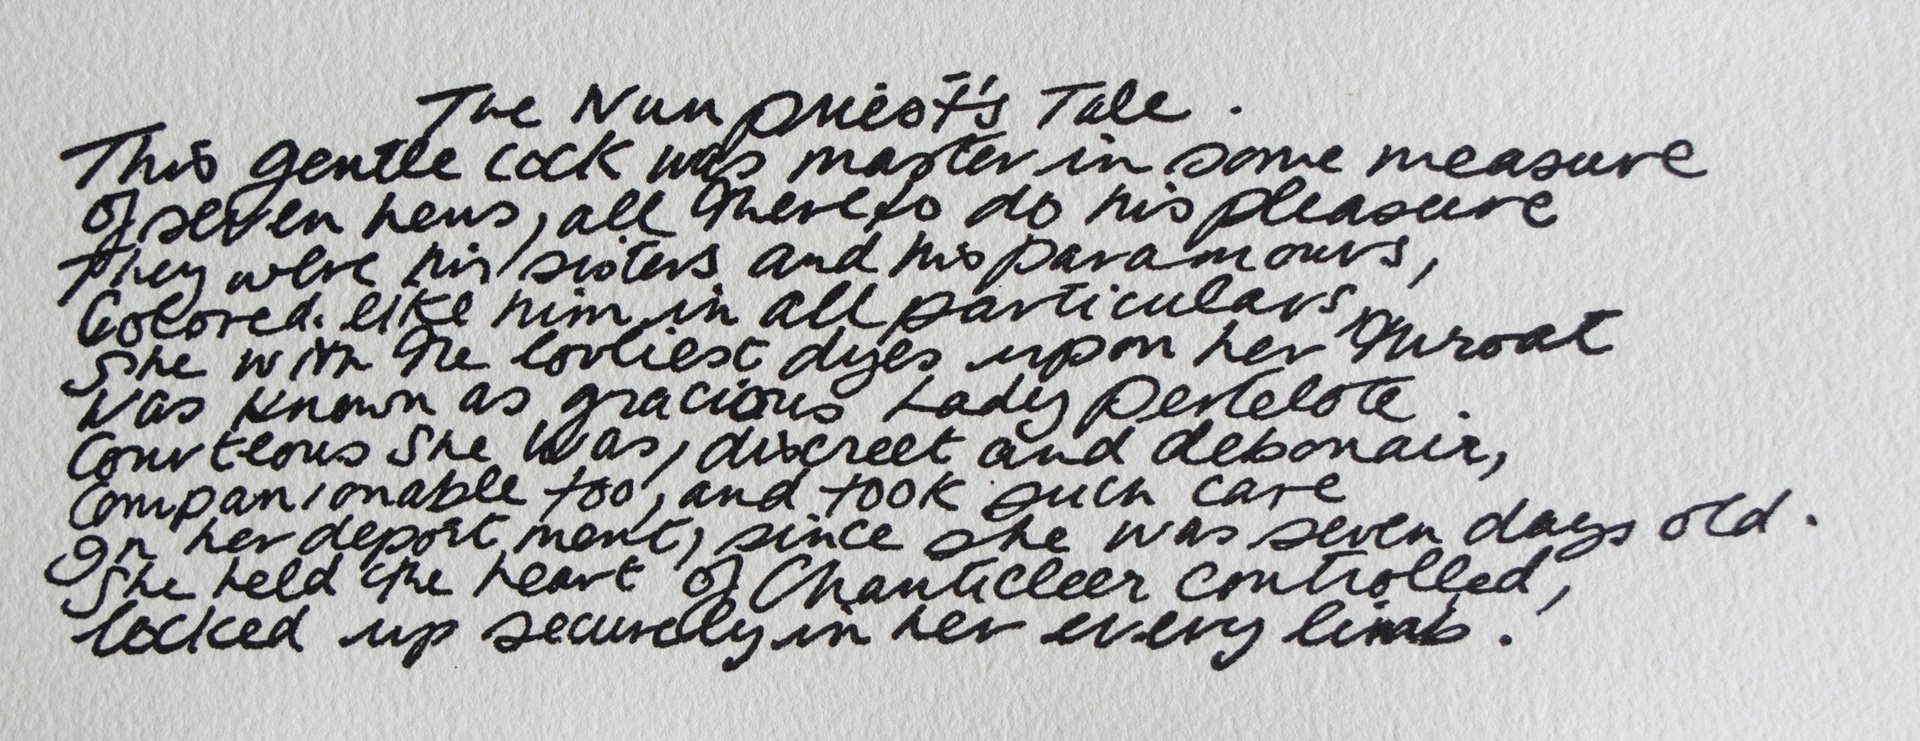 The Nun priest's Tale.
This gentle cock was master in some measure
of seven hens, all there to do his pleasure
They were his sisters and his paramours,
Colored like him in all particulars
She with the lovliest dyes upon her throat
Was known as gracious Lady Pertelote.
Courteous she was, discreet and debonair,
Companionable too, and took such care
In her deportment, since she was seven days old.
She held the heart of Chanticleer controlled,
locked up securely in her every limb.